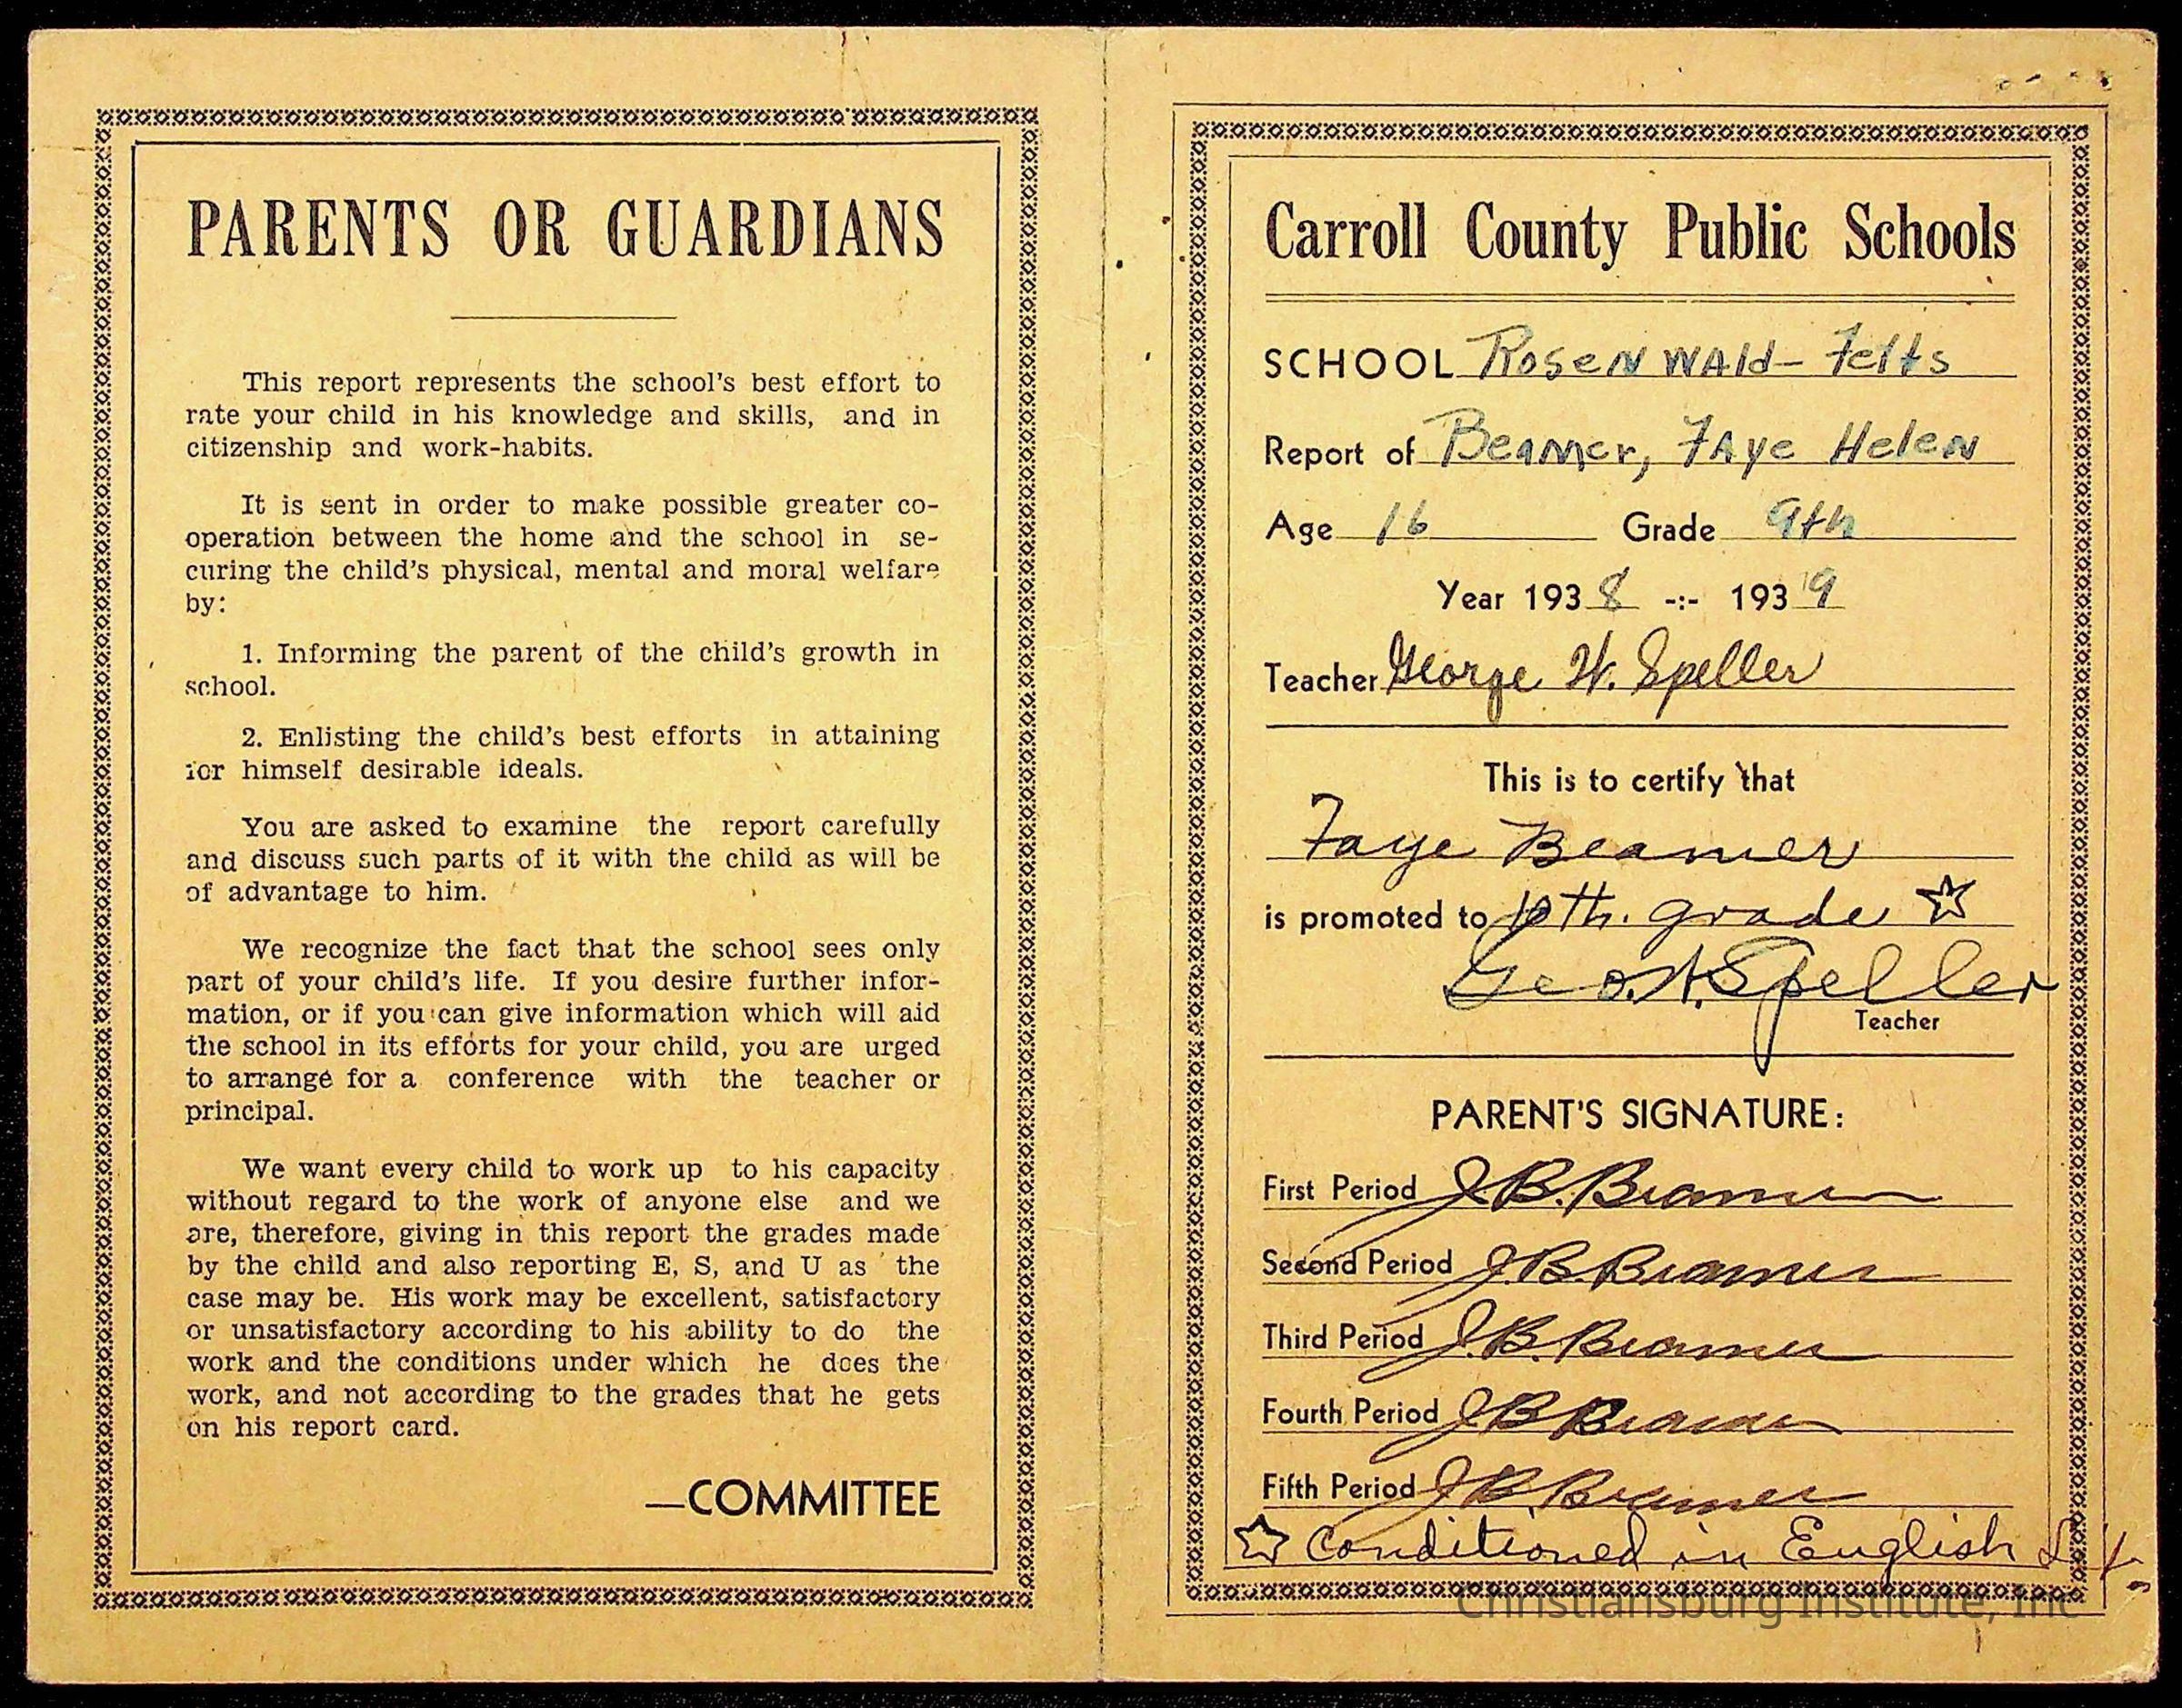 PARENTS OR GUARDIANS
This report represents the school's best effort to
rate your child in his knowledge and skills, and in
citizenship and work-habits.
It is sent in order to make possible greater co-
operation between the home and the school in se-
curing the child's physical, mental and moral welfare
by:
1. Informing the parent of the child's growth in
school.
2. Enlisting the child's best efforts in attaining
for himself desirable ideals.
You are asked to examine the report carefully
and discuss such parts of it with the child as will be
of advantage to him.
We recognize the fact that the school sees only
part of your child's life. If you desire further infor-
mation, or if you can give information which will aid
the school in its efforts for your child, you are urged
to arrange for a conference with the teacher or
principal.
We want every child to work up to his capacity
without regard to the work of anyone else and we
are, therefore, giving in this report the grades made
by the child and also reporting E, S, and U as the
case may be. His work may be excellent, satisfactory
or unsatisfactory according to his ability to do the
work and the conditions under which he does the
work, and not according to the grades that he gets
on his report card.
—COMMITTEE
Carroll County Public Schools
SCHOOL Rosenwald-Felts
Report of Beamer, Faye Helen
Age 16 Grade 9th
Year 1938 -:- 1939
Teacher George W. Speller
This is to certify that
Faye Beamer
is promoted to 10th. grade ☆
Geo. W. Speller
Teacher
PARENT'S SIGNATURE:
First Period J.B. Beamer
Second Period J B Beamer
Third Period J.B. Beamer
Fourth Period J B Beamer
Fifth Period J B. Beamer
☆ Conditioned in English
Christiansburg Institute, Inc